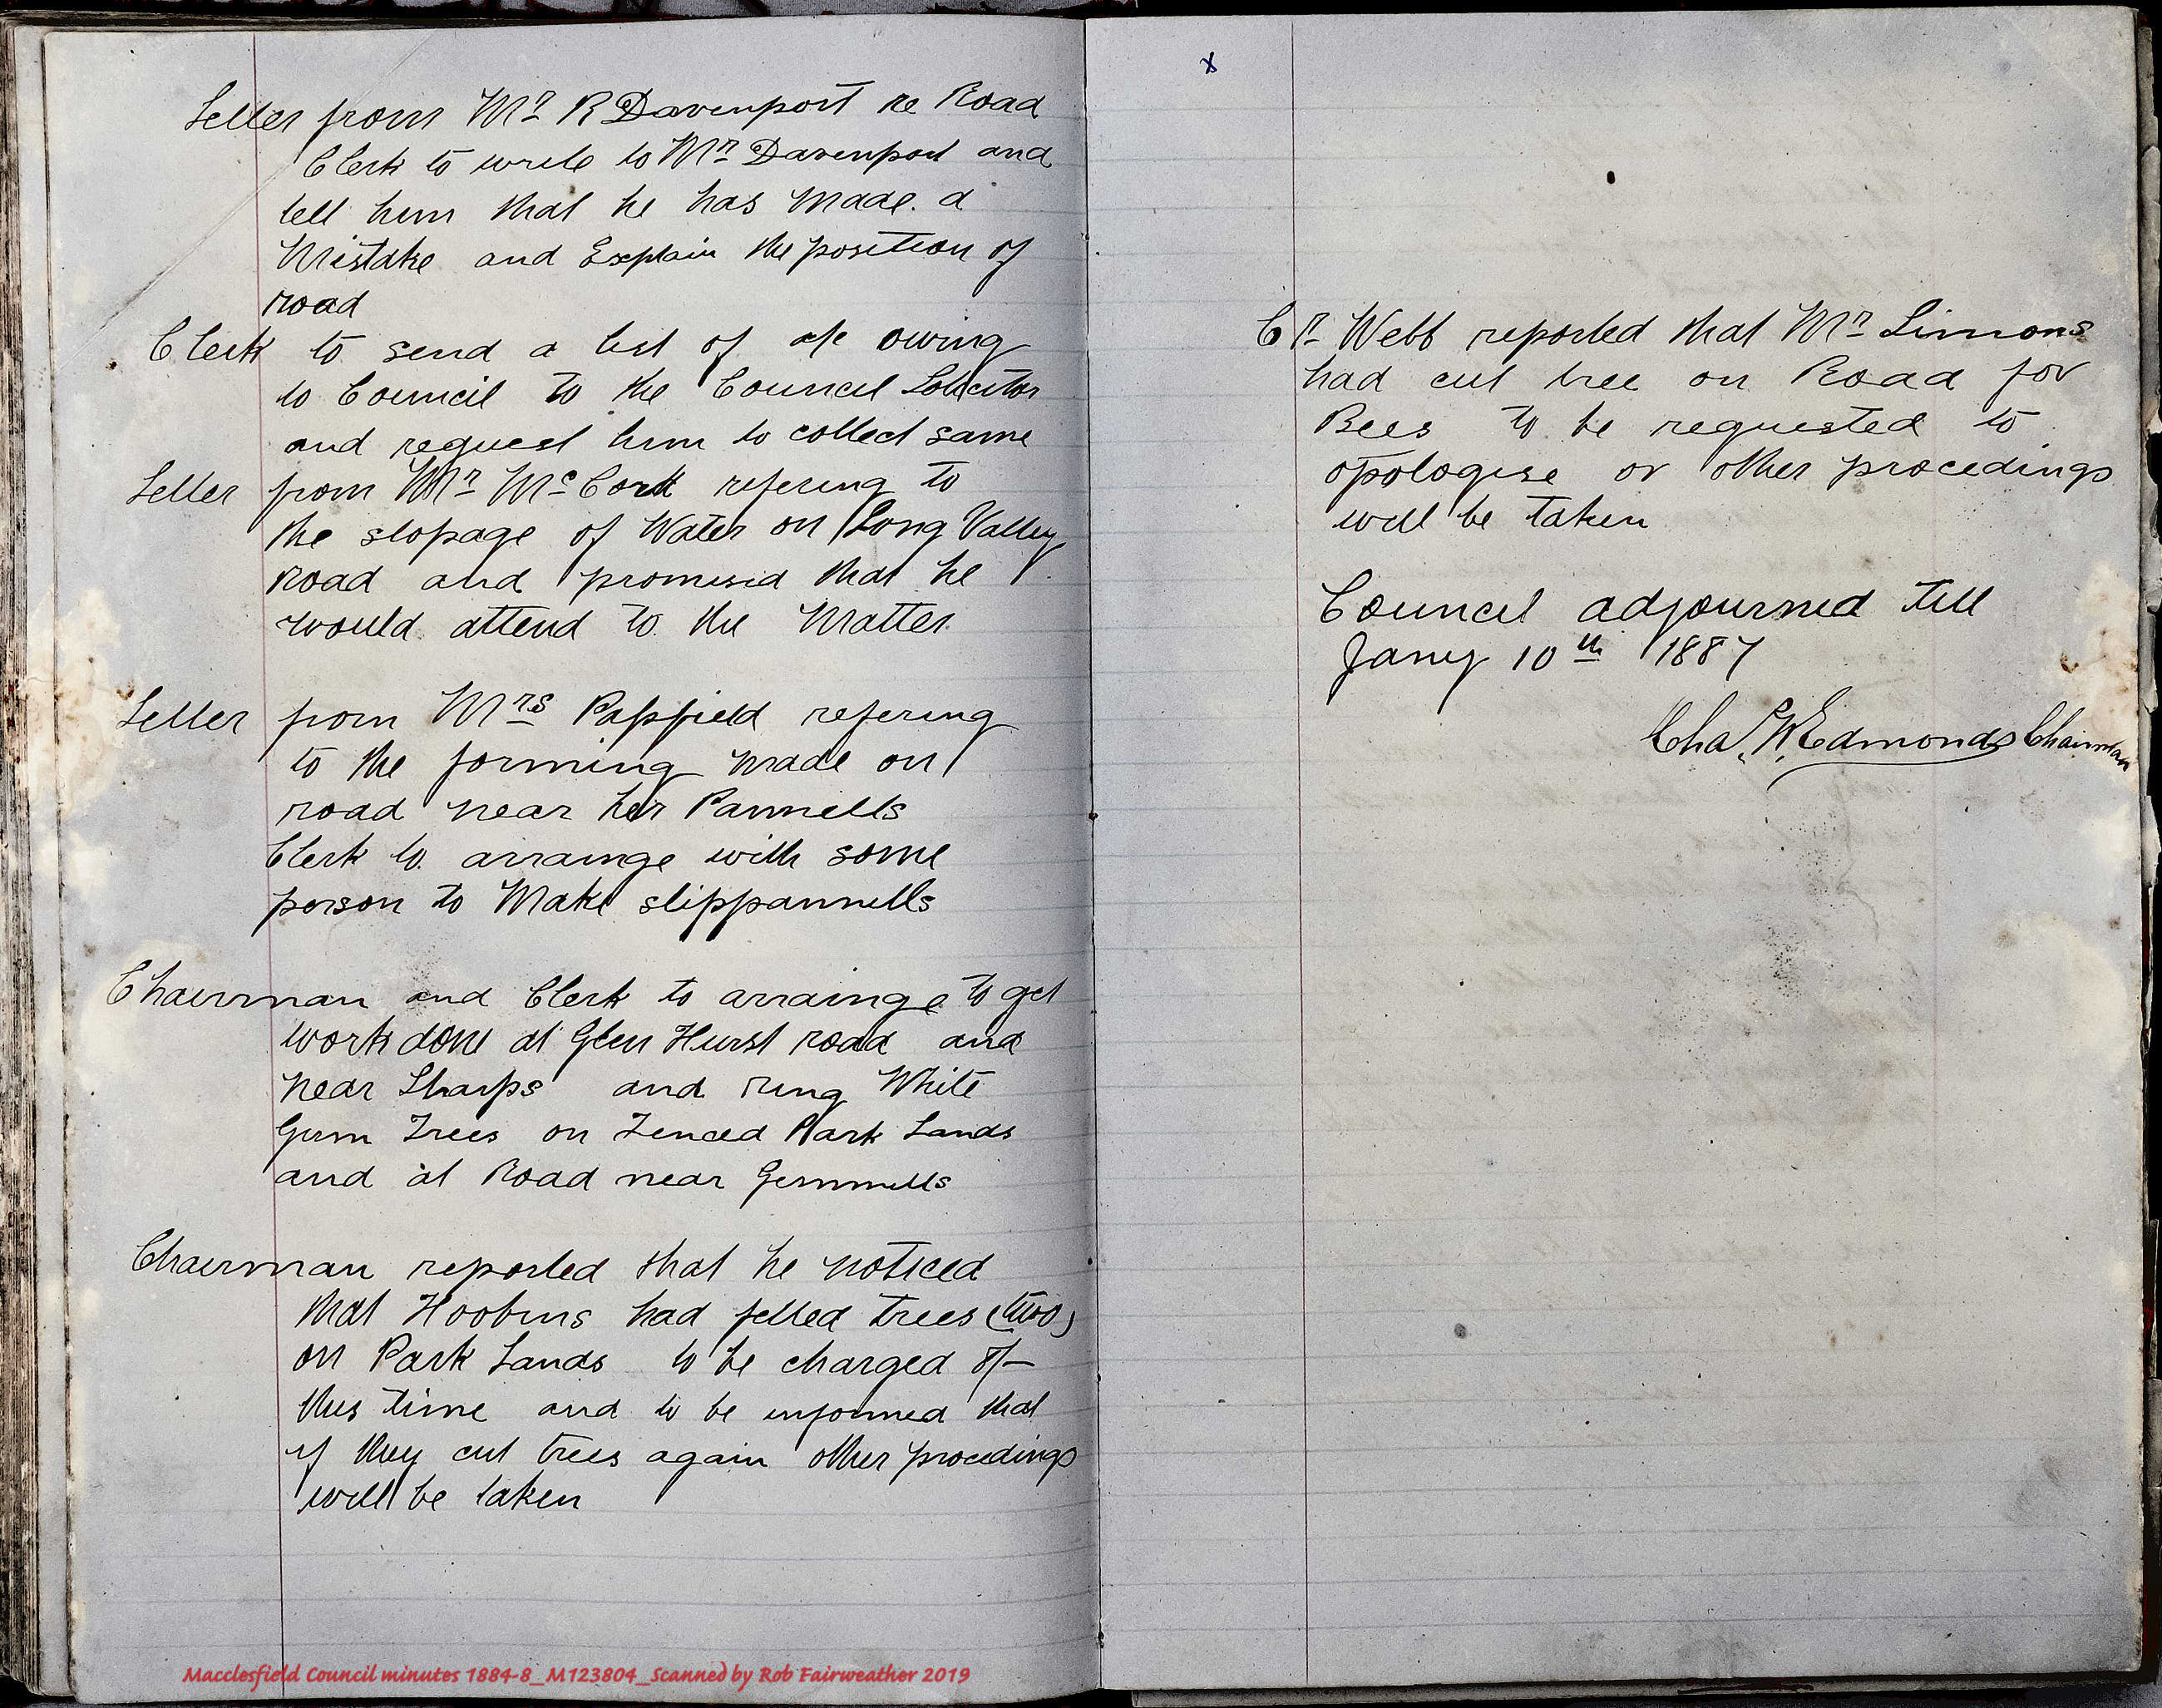 Letter from Mr R Davenport re Road
Clerk to write to Mr Davenport and
tell him that he has made a
Mistake and Explain the position of
road
Clerk to send a list of a/c owing
to Council to the Council Solicitor
and request him to collect same
Letter from Mr Mc Cork refering to
the stopage of Water on Long Valley
Road and promised that he
would attend to the Matter
Letter from Mrs Papfield refering
to the forming made on
road near her Pannells
Clerk to arrainge with some
person to Make slippannells
Chairman and Clerk to arrainge to get
work done at Glen Hurst road and
near Sharps and ring White
Gum Trees on Fenced Park Lands
and at Road near Gemmells
Chairman reported that he noticed
that Hoobins had felled trees (two)
on Park Lands to be charged 8/-
this time and to be informed that
if they cut trees again other procedings
will be taken
x
Cr Webb reported that Mr Simons
had cut tree on Road for
Bees to be requested to
opologise or other procedings
will be taken
Council adjourned till
Jany 10th 1887
Chas W Edmonds Chairman
Macclesfield Council minutes 1884-8_M123804_Scanned by Rob Fairweather 2019